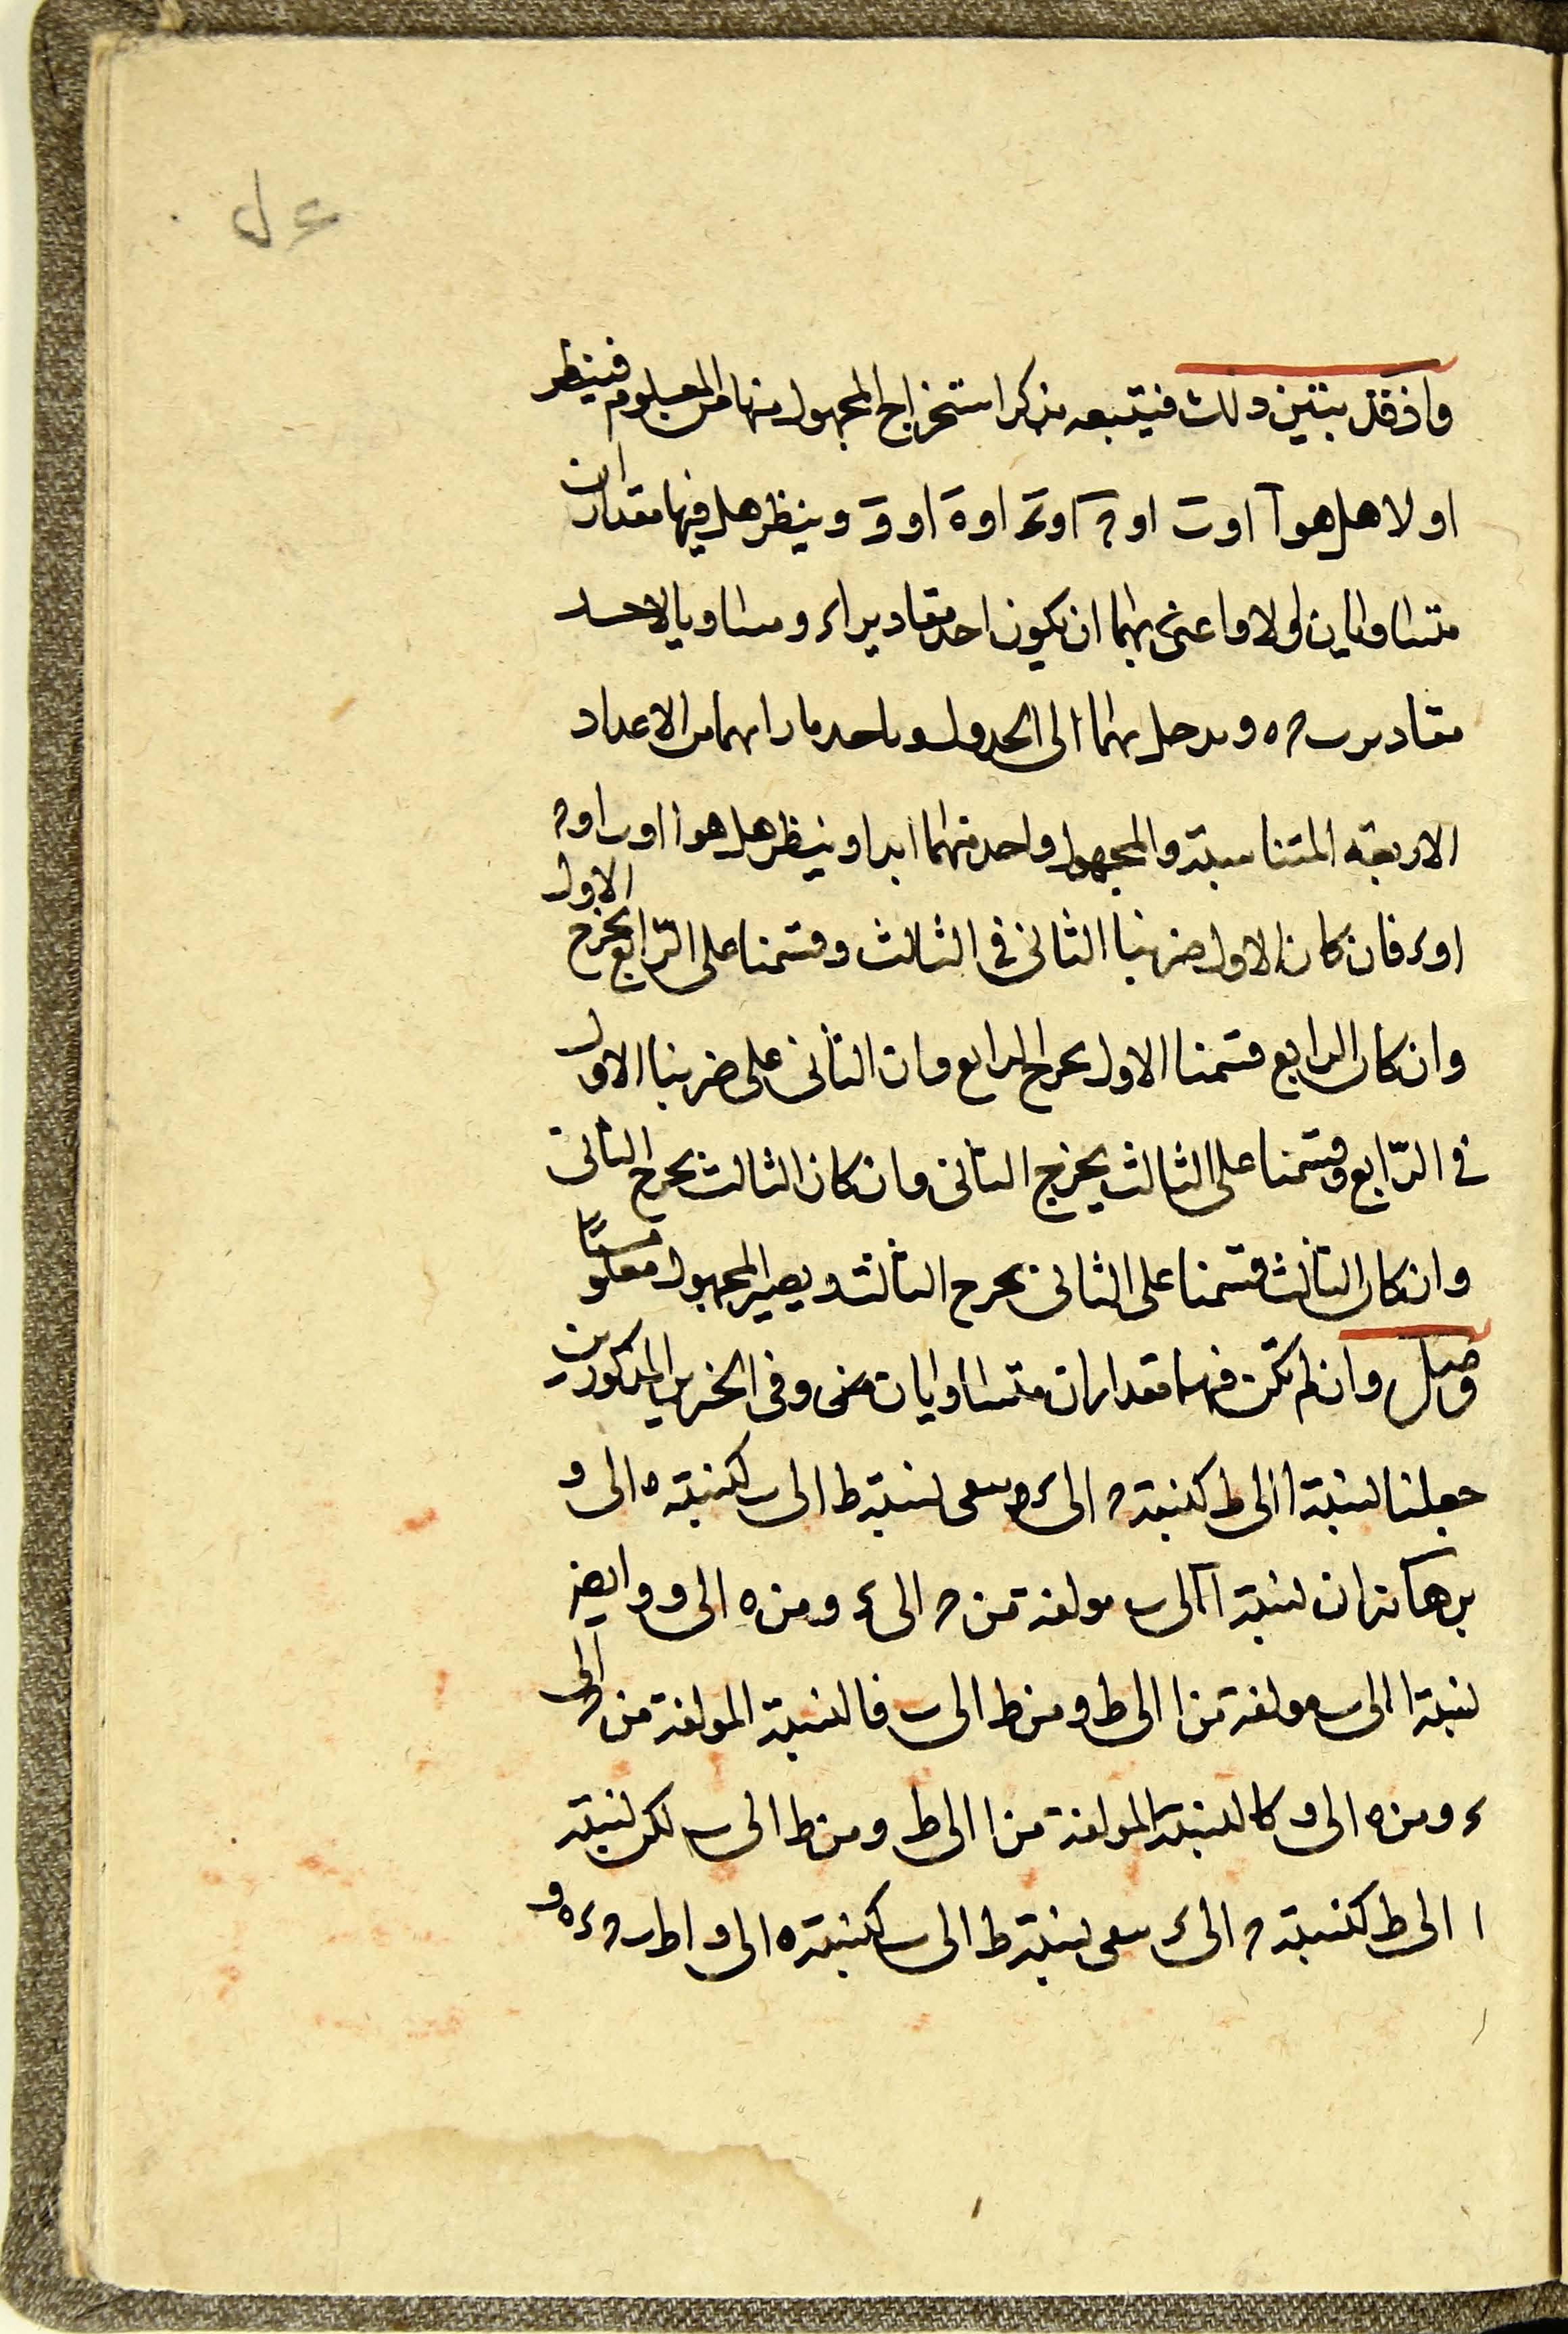 ع ل
واذ قد تبيّن ذلك فنتبعه بذكر استخراج المجهول منها من المعلوم فينظر
اولا هل هو آ او ب او ج او ء او ه او و وينظر هل فيها مقداران
متساويان اولا واعنى بهما ان يكون احد مقادير ا ء و مساويا لاحد
مقادير ب ج ه وندخل بهما الى الجدول وناخذ ما بازائهما من الاعداد
الاربعة المتناسبة والمجهول واحد منهما ابدا وينظر هل هو ا او ب او ج
او ء فان كان الاول ضربنا الثانى فى الثالث وقسمنا على الرّابع يخرج الاول
وان كان الرابع قسمنا الاول يخرج الرابع وان الثانى على ضربنا الاول
فى الرّابع وقسمنا على الثالث يخرج الثانى وان كان الثالث يخرج الثانى
وان كان الثالث قسمنا على الثانى يخرج الثالث ويصير المجهول معلومًا
فصل وان لم تكن فيها مقداران متساويان وفى الخبرين المذكورين
جعلنا نسبة ا الى ط كنسبة ج الى ء وسعى نسبة ط الى ب كنسبة ه الى و
برهانه ان نسبة ا الى ب مولفة من ج الى ء ومن ه الى و وايضا
نسبة ا الى ب مولفة من ا الى ط ومن ط الى ب فالنسبة المولفة من ج الى
ء ومن ه الى و كالنسبة المولفة من ا الى ط ومن ط الى ب لكن نسبة
ا الى ط كنسبة ج الى ء سعى نسبة ط الى ب كنسبة ه الى و ا ط ب ج ء ه و